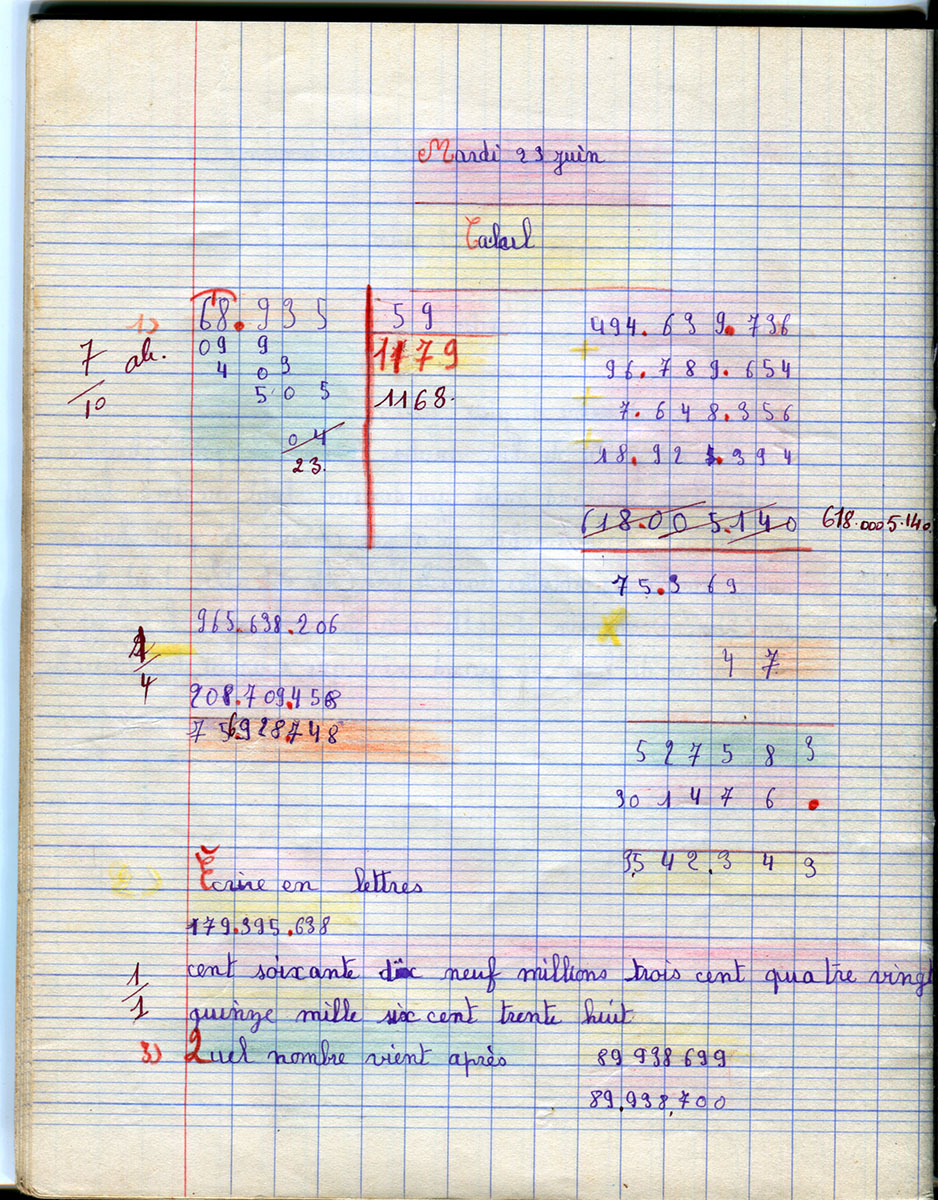 Mardi 23 juin
Calcul
1) 68.935 59
7/10 ab.
09 9 1179
4 03 1168.
505
04
23.
494.639.736
+
96.789.654
+
7.648.356
+
18.925.394
618.005.140 618.0005.140
75.369
x
47
527583
301476.
3542.343
4
965.638.206
208.709.458
756928.748
2) Écrire en lettres
179.395.638
1/1
cent soixante dix neuf millions trois cent quatre vingt
quinze mille six cent trente huit
3) Quel nombre vient après 89 938 699
89.938.700